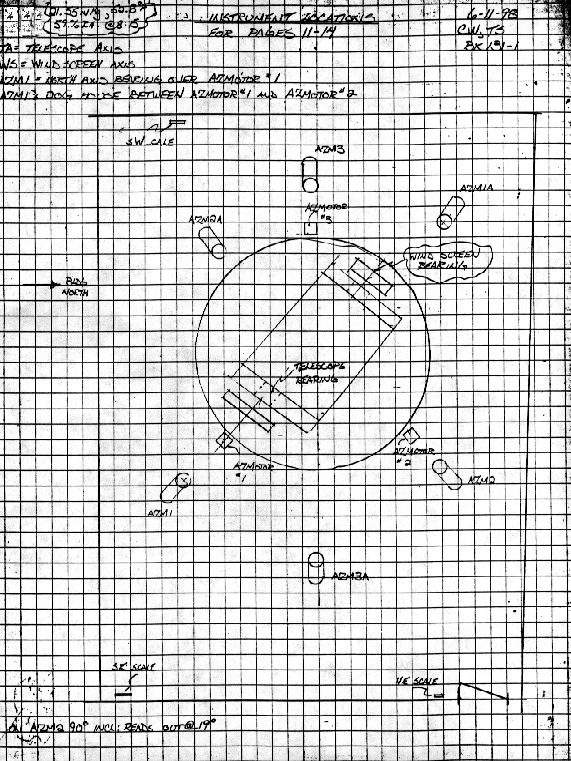 INSTRUMENT LOCATIONS
FOR PAGES 11-14
6-11-93
CW, TS
TA = TELESCOPE AXIS
WS = WIND SCREEN AXIS
AZM1 = NORTH AXIS BEARING OVER AZMOTOR #1
AZM1'S DOG HOUSE BETWEEN AZMOTOR #1 AND AZMOTOR #2
SW SCALE
AZM3
AZM1A
AZMOTOR
#3
AZM2A
WIND SCREEN
BEARING
BLDG
NORTH
TELESCOPE
BEARING
AZMOTOR
#1
AZMOTOR
#2
AZM2
AZM1
AZM3A
SE SCALE
NE SCALE
AZM2 90° INCL: READS OUT @ 19°